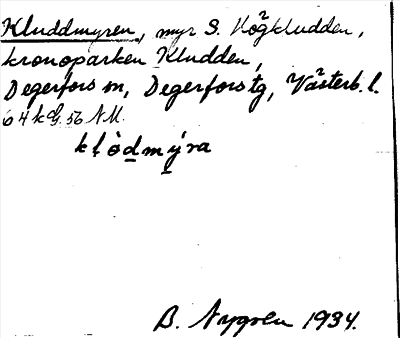 Kluddmyren, myr S. Högkludden,
kronoparken Kludden,
Degerfors m, Degerfors tg, Västerb. l.
ö 4 k G. 56 NM.
kḷòd̲mý̲ra
B. Nygren 1934.